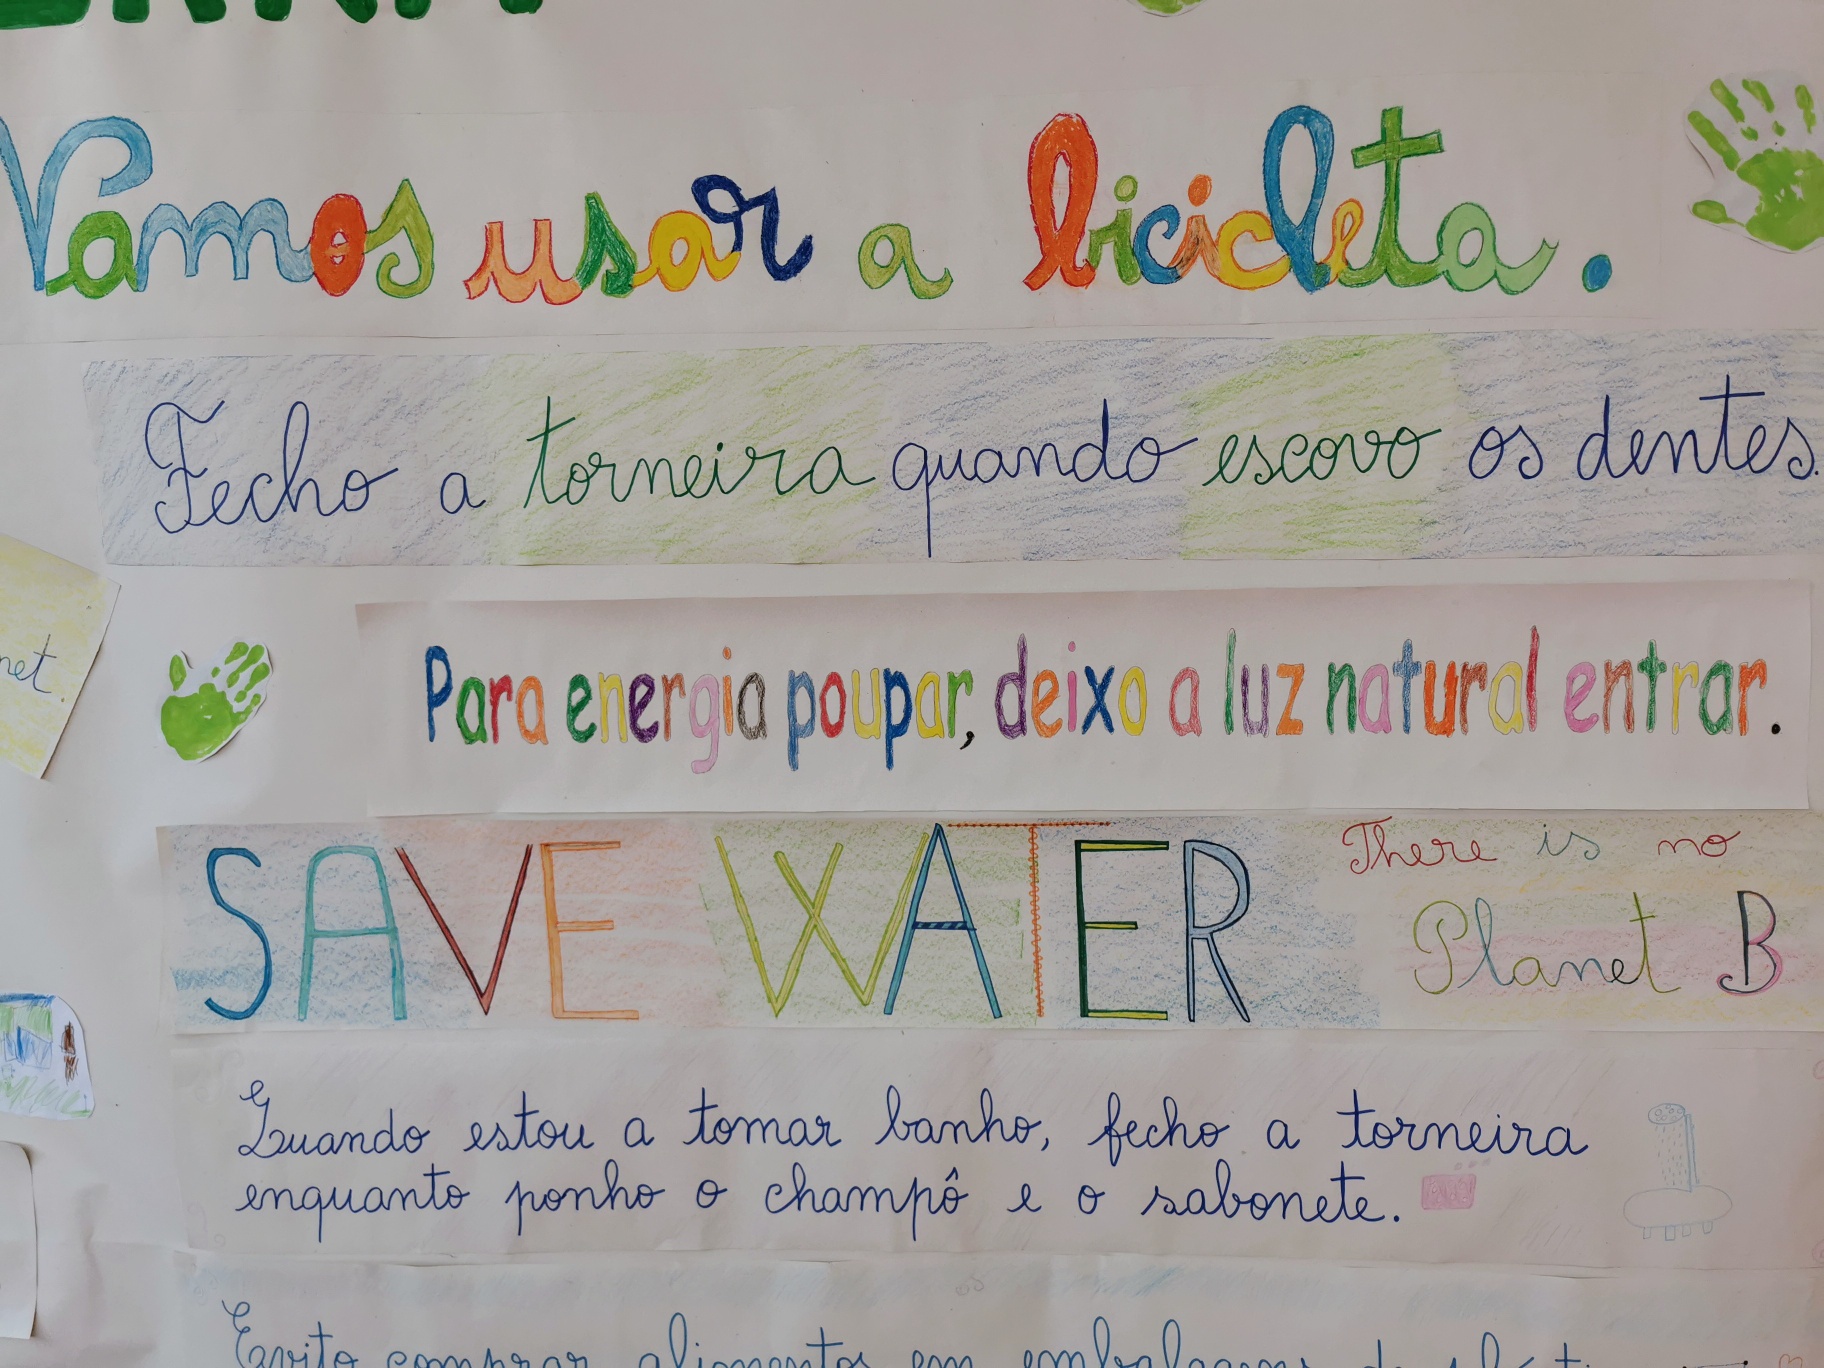 Vamos usar a bicicleta.
Fecho a torneira quando escovo os dentes.
net.
Para energia poupar, deixo a luz natural entrar.
SAVE WATER
There is no
Planet B
Quando estou a tomar banho, fecho a torneira
enquanto ponho o champô e o sabonete.
Evito comprar alimentos em embalagens de plásti